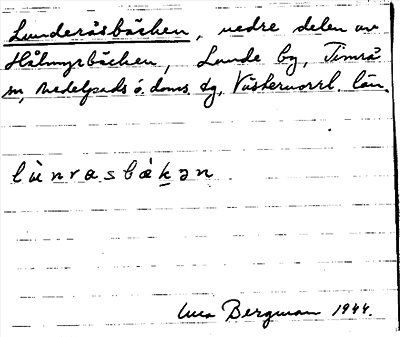 Lunderåsbäcken, nedre delen av
Håkmyrbäcken, Lunde by, Timrå
sn, Medelpads ö. doms. tg, Västernorrl. län.
lùnrasbækən
Bergman 1944.